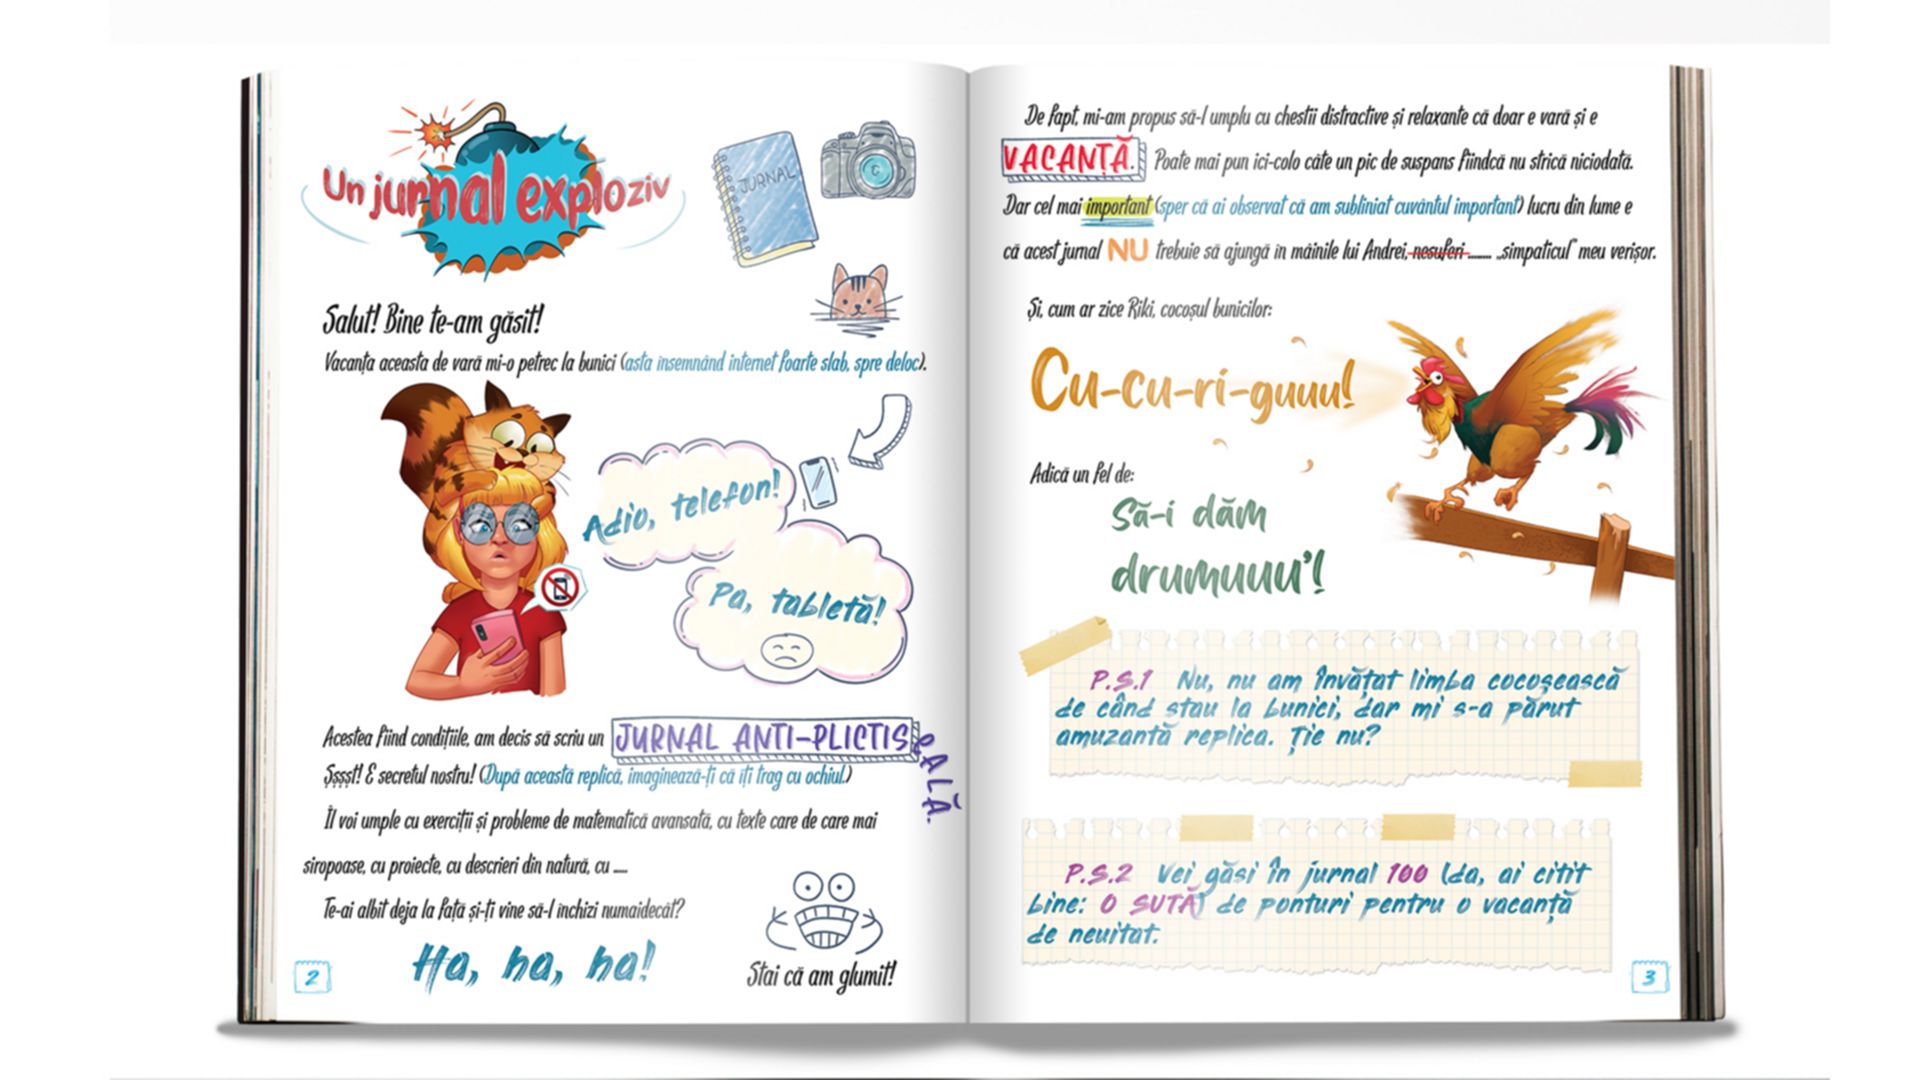 Un jurnal exploziv
JURNAL
Salut! Bine te-am găsit!
Vacanța aceasta de vară mi-o petrec la bunici (asta însemnând internet foarte slab, spre deloc).
Adio, telefon!
Pa, tabletă!
Acestea fiind condițiile, am decis să scriu un JURNAL ANTI-PLICTISEALĂ.
Șșșșt! E secretul nostru! (După această replică, imaginează-ți că îți trag cu ochiul.)
Îl voi umple cu exerciții și probleme de matematică avansată, cu texte care de care mai
siropoase, cu proiecte, cu descrieri din natură, cu .....
Te-ai albit deja la față și-ți vine să-l închizi numaidecât?
Ha, ha, ha!
Stai că am glumit!
2
De fapt, mi-am propus să-l umplu cu chestii distractive și relaxante că doar e vară și e
VACANȚĂ. Poate mai pun ici-colo câte un pic de suspans fiindcă nu strică niciodată.
Dar cel mai important (sper că ai observat că am subliniat cuvântul important) lucru din lume e
că acest jurnal NU trebuie să ajungă în mâinile lui Andrei, nesuferi ........ „simpaticul” meu verișor.
Și, cum ar zice Riki, cocoșul bunicilor:
Cu-cu-ri-guuu!
Adică un fel de:
Să-i dăm
drumuuu'!
P.S.1 Nu, nu am învățat limba cocoșească
de când stau la bunici, dar mi s-a părut
amuzantă replica. Ție nu?
P.S.2 Vei găsi în jurnal 100 (da, ai citit
bine: O SUTĂ) de ponturi pentru o vacanță
de neuitat.
3